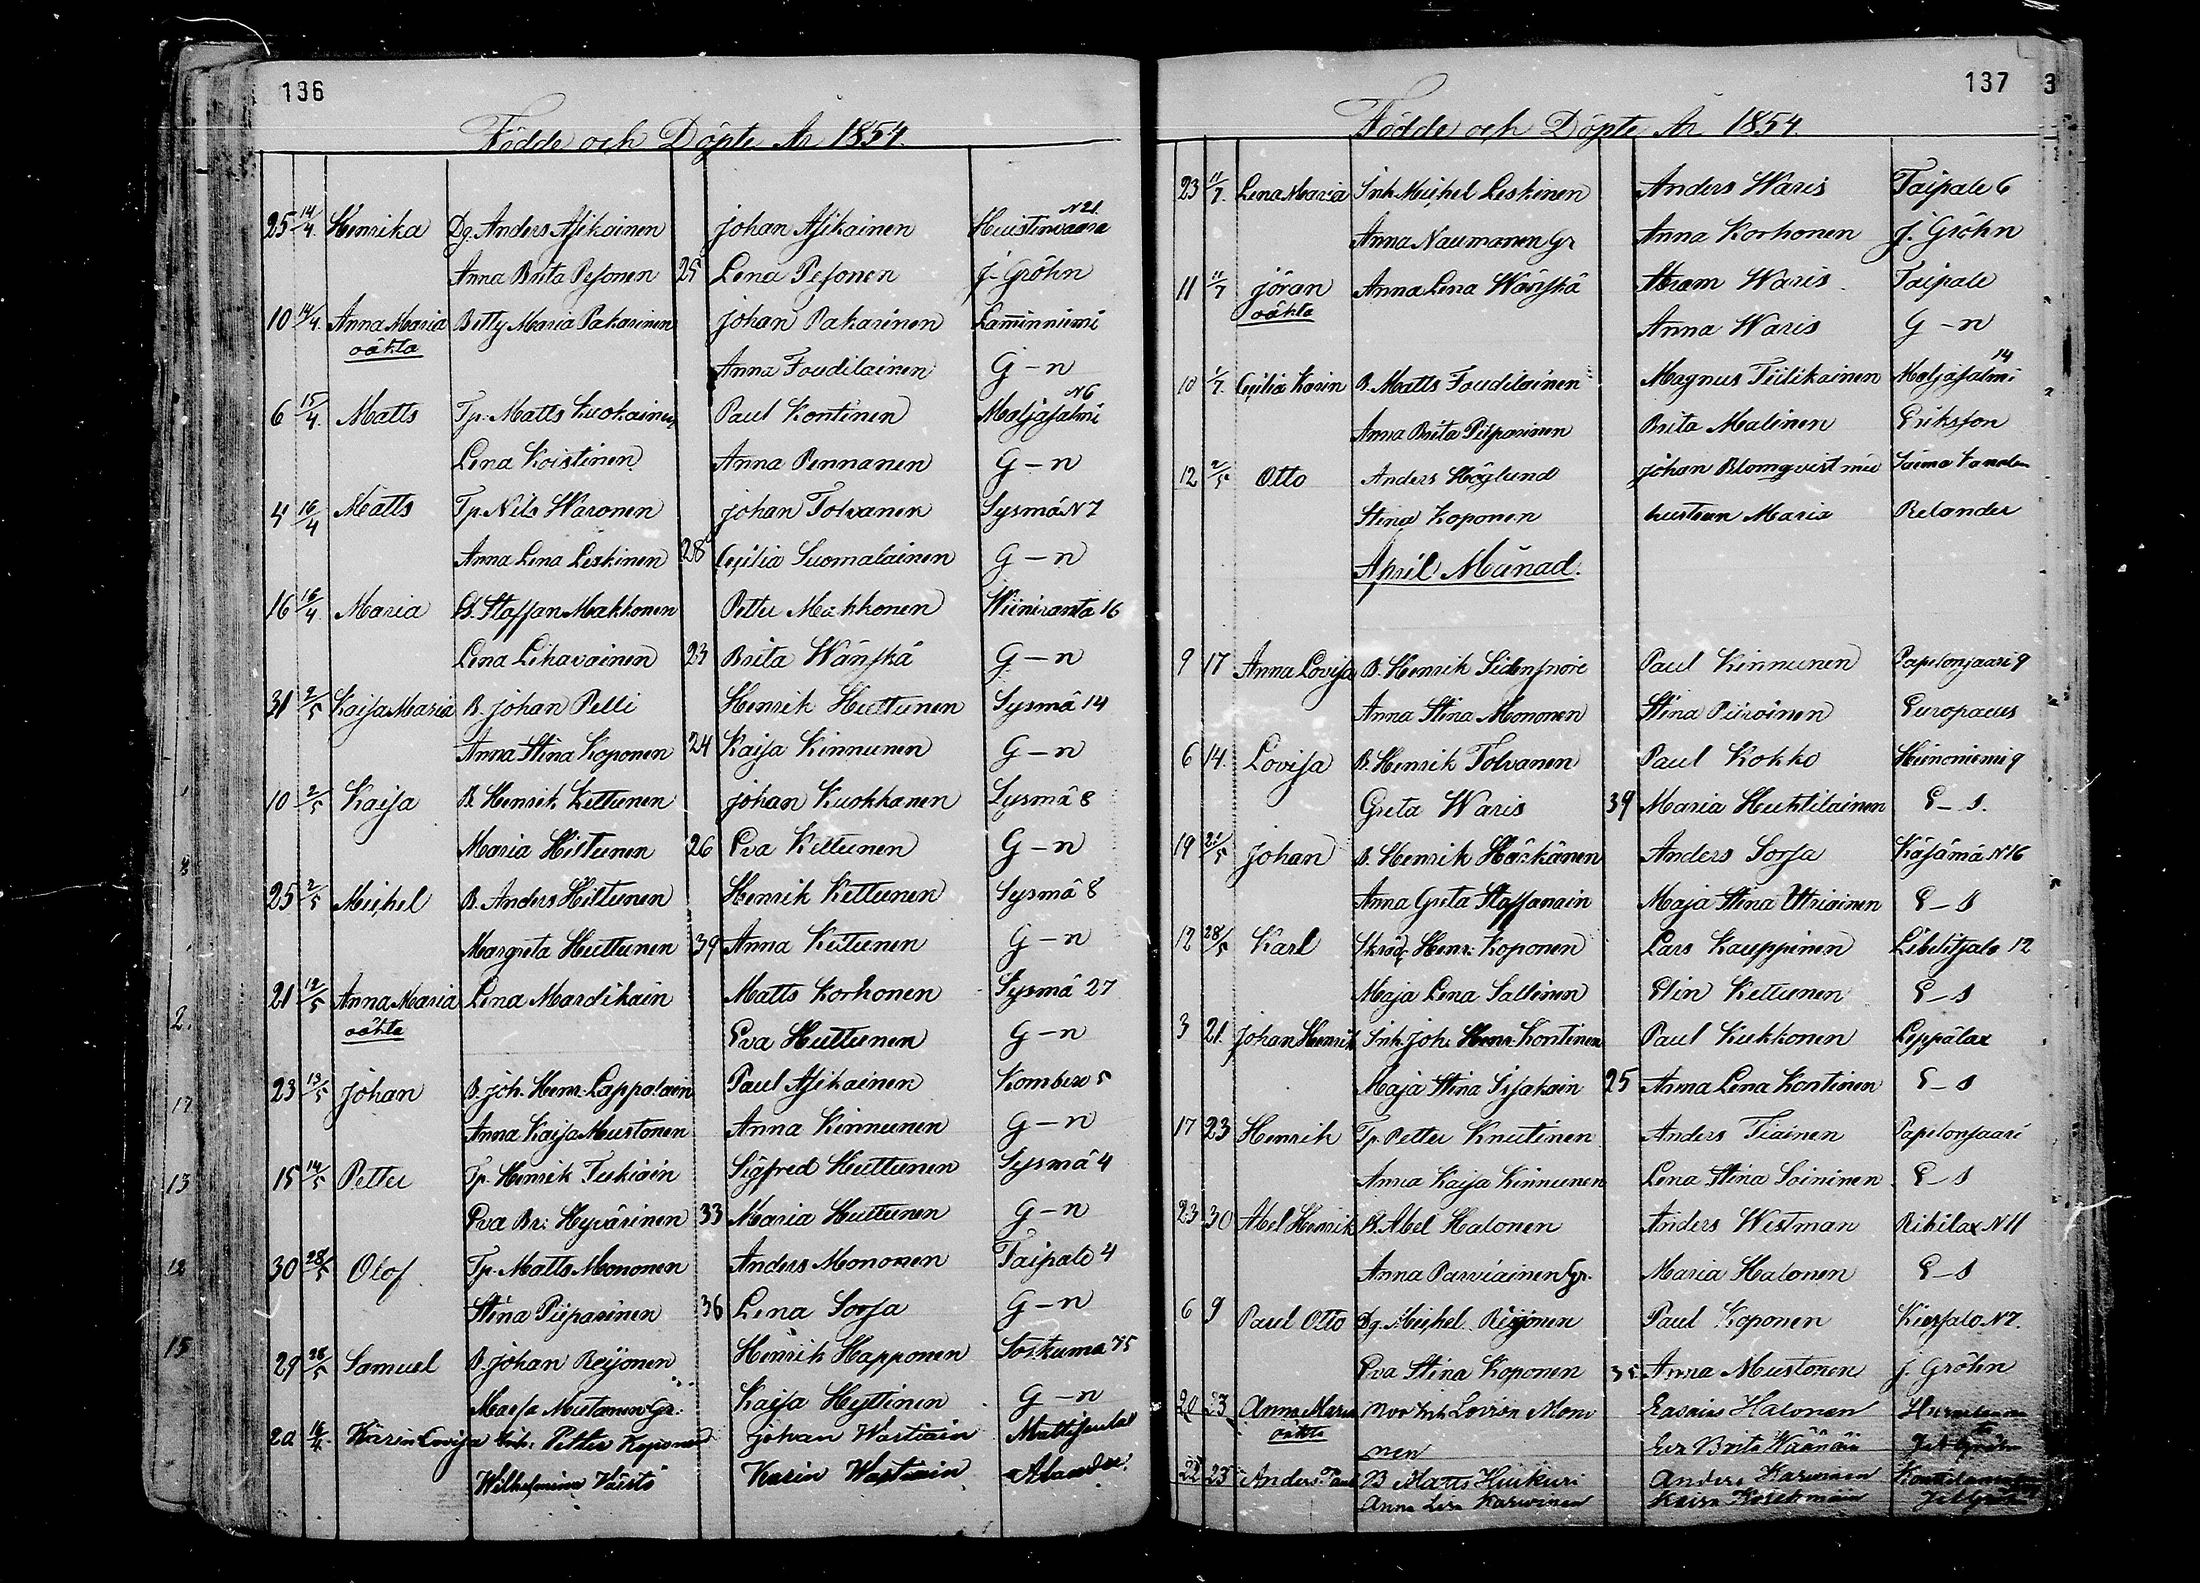 136
Födde och Döpte År 1854.
N 21.
25 14/4. Henrika Dg. Anders Asikainen Johan Asikainen Huistinvaara
Anna Brita Pesonen 25 Lena Pesonen J. Gröhn
10 14/4. Anna Maria Betty Maria Pakarinen Johan Pakarinen Laminniemi
oäkta
Anna Toudilainen G-n
N6
6 15/4. Matts Tp. Matts Kuokainen Paul Kontinen Maljasalmi
Lena Koistinen Anna Pennanen G-n
4 16/4 Matts Tp. Nils Waronen Johan Tolvanen Sysmä N 7
Anna Lena Leskinen 28 Cecilia Suomalainen G-n
16 16/4. Maria B. Staffan Makkonen Petter Makkonen Wiiniranta 16
Lena Lihavainen 23 Brita Wänskä G-n
31 2/5 Kaisa Maria B. Johan Pelli Henrik Huttunen Sysmä 14
Anna Stina Koponen 24 Kaisa Kinnunen G-n
10 2/5 Kaisa B. Henrik Kettunen Johan Kuokkanen Sysmä 8
Maria Hiltunen 26 Eva Kettunen G-n
25 2/5 Michel B. Anders Hiltunen Henrik Kettunen Sysmä 8
Margreta Huttunen 39 Anna Kettunen G-n
21 12/5 Anna Maria Lena Mardikain Matts Korhonen Sysmä 27
oäkta
Eva Huttunen G-n
23 13/5 Johan B. Joh. Henr. Lappalain Paul Asikainen Kombero 5
Anna Kaisa Mustonen Anna Kinnunen G-n
15 14/5 Petter Tp. Henrik Tukiain Sigfred Huttunen Sysmä 4
Eva Br: Hyvärinen 33 Maria Huttunen G-n
30 28/5 Olof Tp. Matts Mononen Anders Mononen Taipale 4
Stina Piiparinen 36 Lena Sorsa G-n
29 28/5 Samuel B. Johan Reijonen Henrik Happonen Sotkuma 75
Maria Mustonen Gr. Kaisa Hyttinen G-n
20 16/4. Karin Lovisa Inh: Petter Koponen Johan Wartiain
Wilhelmina Väistö Karin Wartiain
137
Födde och Döpte År 1854.
23 11/7. Lena Maria Inh. Michel Leskinen Anders Waris Taipale 6
Anna Naumanen Gr Anna Korhonen J. Gröhn
11 11/7 Jöran Anna Lena Wänskä Abram Waris Taipale
oäkta
Anna Waris G-n
14
10 1/7. Cecilia Karin B. Matts Toudilainen Magnus Tiilikainen Maljasalmi
Anna Brita Piiparinen Brita Malinen Eriksson
12 2/5 Otto Anders Höglund Johan Blomqvist med Saima Kanalen
Stina Koponen hustrun Maria Relander
April Månad.
9 17 Anna Lovisa B. Henrik Sidensnöre Paul Kinnunen Papelonsaari 9
Anna Stina Mononen Stina Piiroinen Europaeus
6 14. Lovisa B. Henrik Tolvanen Paul Kokko Heinoniemi 9
Greta Waris 39 Maria Huhtilainen E-s.
19 21/5 Johan B. Henrik Härkänen Anders Sorsa Käsämä N16
Anna Greta Staffanain Maja Stina Uttriainen E-s
12 28/5 Karl Skräd. Henr. Koponen Lars Kauppinen Libelitsalo 12
Maja Lena Sallinen Elin Kettunen E-s
3 21. Johan Henrik Inh. Joh. Henr. Kontinen Paul Kukkonen Leppälax
Maja Stina Sissakain 25 Anna Lena Kontinen E-s
17 23 Henrik Tp. Petter Knutinen Anders Tiainen Papelonsaari
Anna Kaisa Kinnunen Lena Stina Soininen E-s
23 30 Abel Henrik B. Abel Halonen Anders Westman Rikilax N11
Anna Parviainen Gr. Maria Halonen E-s
6 9 Paul Otto Dg. Michel Reijonen Paul Koponen Kiessalo N7.
Eva Stina Koponen 35 Anna Mustonen J. Gröhn
20 23 Anna Maria Lovisa Mono Halonen
oäkta
nen Eva Brita Väänäin
22 23 Anders Paul B Matts Kuikuri Anders Karvinen
Anna Lisa Karvinen